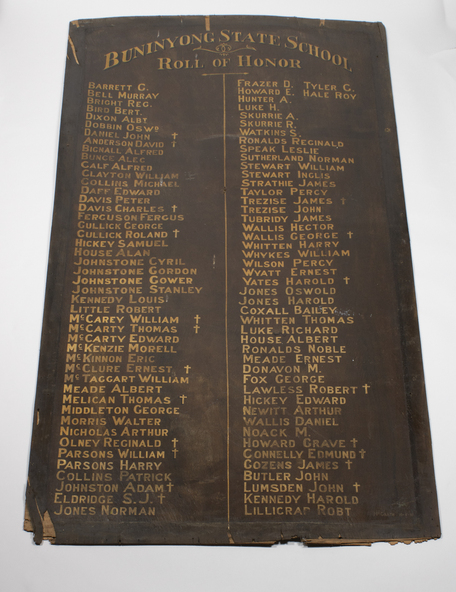 BUNINYONG STATE SCHOOL
ROLL OF HONOR
BARRETT G.
BELL MURRAY
BRIGHT REG.
BIRD BERT.
DIXON ALBT
DOBBIN OSWD
DANIEL JOHN †
ANDERSON DAVID †
BICNALL ALFRED
BUNCE ALEC
CALF ALFRED
CLAYTON WILLIAM
COLLINS MICHAEL
DAFF EDWARD
DAVIS PETER
DAVIS CHARLES †
FERGUSON FERGUS
GULLICK GEORGE
GULLICK ROLAND †
HICKEY SAMUEL
HOUSE ALAN
JOHNSTONE CYRIL
JOHNSTONE GORDON
JOHNSTONE GOWER
JOHNSTONE STANLEY
KENNEDY LOUIS
LITTLE ROBERT
McCAREY WILLIAM †
McCARTY THOMAS †
McCARTY EDWARD
McKENZIE MORELL
McKINNON ERIC
McCLURE ERNEST †
McTAGGART WILLIAM
MEADE ALBERT
MELICAN THOMAS †
MIDDLETON GEORGE
MORRIS WALTER
NICHOLAS ARTHUR
OLNEY REGINALD †
PARSONS WILLIAM †
PARSONS HARRY
COLLINS PATRICK
JOHNSTON ADAM †
ELDRIDGE S.J. †
JONES NORMAN
FRAZER D. TYLER C.
HOWARD E. HALE ROY
HUNTER A.
LUKE H.
SKURRIE A.
SKURRIE R.
WATKINS S.
RONALDS REGINALD
SPEAK LESLIE
SUTHERLAND NORMAN
STEWART WILLIAM
STEWART INGLIS
STRATHIE JAMES
TAYLOR PERCY
TREZISE JAMES †
TREZISE JOHN
TUBRIDY JAMES
WALLIS HECTOR
WALLIS GEORGE †
WHITTEN HARRY
WHYKES WILLIAM
WILSON PERCY
WYATT ERNEST
YATES HAROLD †
JONES OSWOLD
JONES HAROLD
COXALL BAILEY
WHITTEN THOMAS
LUKE RICHARD
HOUSE ALBERT
RONALDS NOBLE
MEADE ERNEST
DONAVON M.
FOX GEORGE
LAWLESS ROBERT †
HICKEY EDWARD
NEWITT ARTHUR
WALLIS DANIEL
NOACK M.
HOWARD GRAVE †
CONNELLY EDMUND †
COZENS JAMES †
BUTLER JOHN
LUMSDEN JOHN †
KENNEDY HAROLD
LILLICRAP ROBT